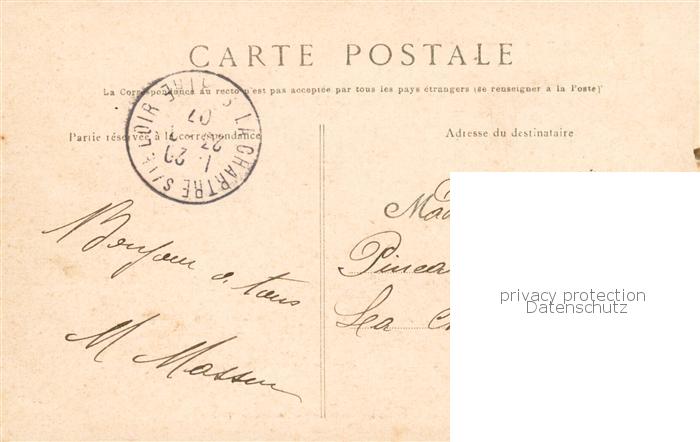 CARTE POSTALE
La Correspondance au recto n'est pas acceptée par tous les pays étrangers (se renseigner à la Poste)
Partie réservée à la correspondance
Adresse du destinataire
LA CHARTRE S/ LE LOIR
27
07
Bonjour à tous
M Masson
Mad
Pincea
La Ch
privacy protection
Datenschutz